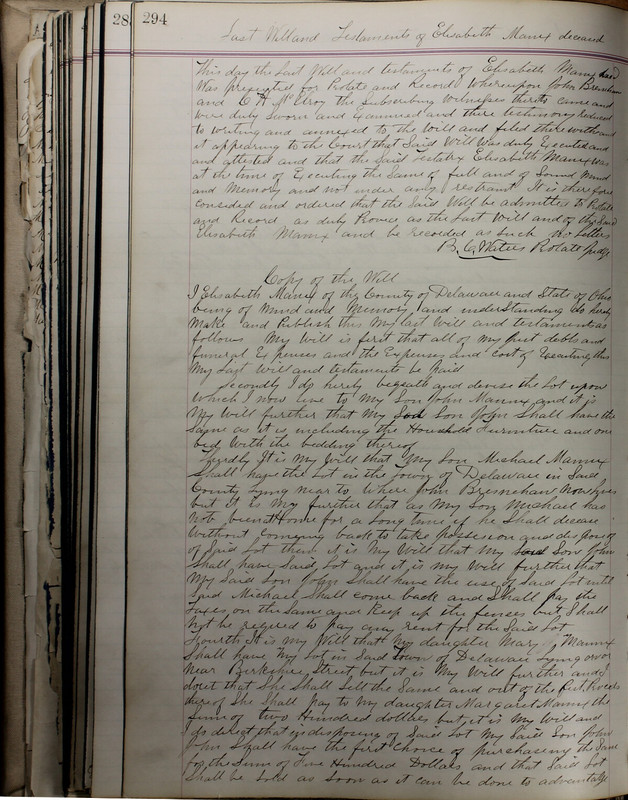 28
294
Last Will and Testaments of Elisabeth Mannix deceased
This day the Last Will and testaments of Elisabeth Mannix decd
Was presented for Probate and Record Whereupon John Bresnahan
and C H McElroy the Subscribing Witnesses thereto came and
were duly Sworn and Examined and there testimony reduced
to Writing and annexed to the Will and filed therewith and
it appearing to the Court that Said Will Was duly Executed and
and attested and that the Said testatrix Elisabeth Mannix was
at the time of Executing the Same of full and of Sound Mind
and Memory and not under any restraint It is therefore
Consided and ordered that the Said Will be admitted to Probate
and Record as duly Proven as the Last Will and of the Said
Elisabeth Mannix and be recorded as Such no letters
B. C. Waters Probate Judge
Copy of the Will
I Elisabeth Mannix of the County of Delaware and State of Ohio
being of Mind and Memory and understanding do hereby
Make and Publish this My last Will and testament as
follows My Will is first that all of my just debts and
funeral Expenses and the Expenses and Cost of Executing this
My Last Will and testaments be Paid
Secondly I do hereby bequeath and devise the Lot upon
Which I now live to My Son John Mannix and it is
My Will further that My Son John Shall have the
Same as it is including the Household Furniture and one
bed With the bedding thereof
Thirdly It is My Will that My Son Michael Mannix
Shall have the Lot in the town of Delaware in Said
County Lying near to Where John Bresnehan Now lives
but it is My further that as My Son Michael has
Not been at Home for a Long time if he Shall decease
Without Coming back to take possession and dispose of
of Said Lot then it is My Will that My Said Son John
Shall have Said Lot and it is my Will further that
My Said Son John Shall have the use of Said Lot until
Said Michael Shall come back and Shall pay the
Taxes on the Same and Keep up the fences but Shall
Not be required to pay any rent for the Said Lot
Fourth It is My Will that My daughter Mary Mannix
Shall have My Lot in Said Town of Delaware Lying on or
Near Berkshire Street but it is My Will further and I
direct that She Shall Sell the Same and out of the
thereof She Shall pay to My daughter Margaret Mannix the
Sum of two Hundred dollars but it is My Will and
I do direct that in disposing of Said Lot My Said Son John
John Shall have the first Choice of purchasing the Same
for the Sum of Five Hundred Dollars and that Said Lot
Shall be Sold as Soon as it can be done to advantage